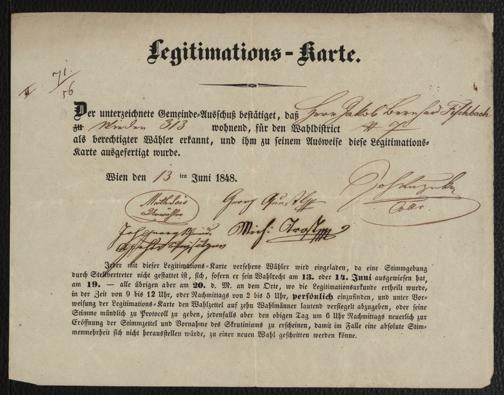 Legitimations-Karte.
71
56
Der unterzeichnete Gemeinde-Ausschuß bestätiget, daß Herr Jakob Bernhard Fischbach
zu Wieden 313 wohnend, für den Wahldistrict
als berechtigter Wähler erkannt, und ihm zu seinem Ausweise diese Legitimations-
Karte ausgefertigt wurde.
Wien den 13 ten Juni 1848.
Georg
Mich:
Jeder mit dieser Legitimations-Karte versehene Wähler wird eingeladen, da eine Stimmgebung
durch Stellvertreter nicht gestattet ist, sich, sofern er sein Wahlrecht am 13. oder 14. Juni ausgewiesen hat,
am 19. — alle übrigen aber am 20. d. M. an dem Orte, wo die Legitimationsurkunde ertheilt wurde,
in der Zeit von 9 bis 12 Uhr, oder Nachmittags von 2 bis 5 Uhr, persönlich einzufinden, und unter Vor-
weisung der Legitimations-Karte den Wahlzettel auf zehn Wahlmänner lautend versiegelt abzugeben, oder seine
Stimme mündlich zu Protocoll zu geben, jedenfalls aber den obigen Tag um 6 Uhr Nachmittags neuerlich zur
Eröffnung der Stimmzettel und Vornahme des Skrutiniums zu erscheinen, damit im Falle eine absolute Stim-
menmehrheit sich nicht herausstellen würde, zu einer neuen Wahl geschritten werden könne.